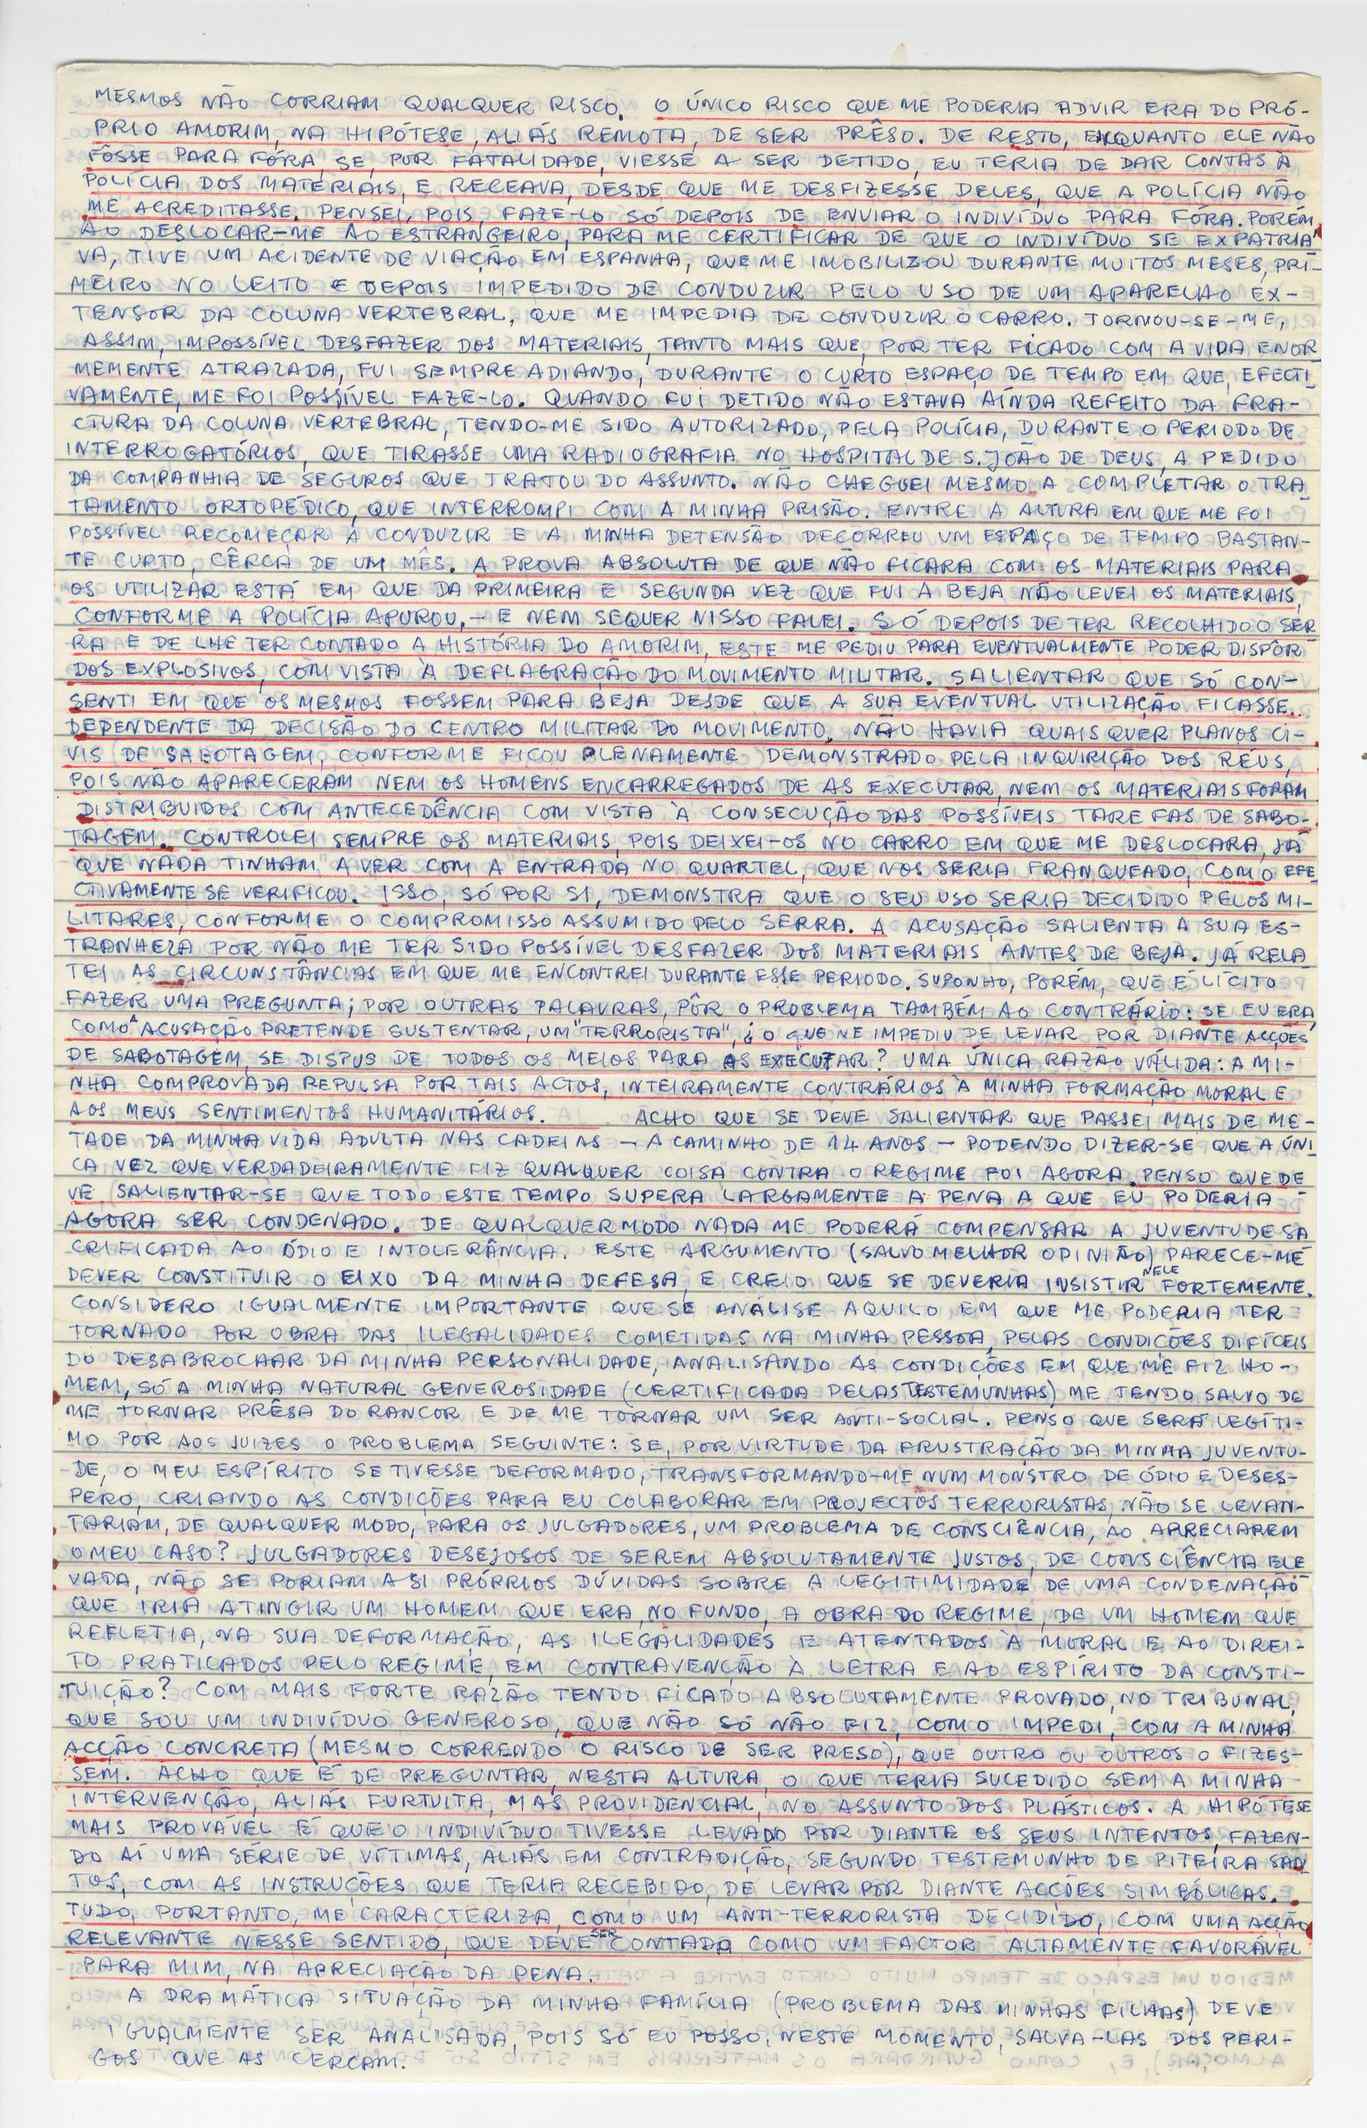 MESMOS NÃO CORRIAM QUALQUER RISCO. O ÚNICO RISCO QUE ME PODERIA ADVIR ERA DO PRÓ-
PRIO AMORIM, NA HIPÓTESE, ALIÁS REMOTA, DE SER PRÊSO. DE RESTO, ENQUANTO ELE NÃO
FÔSSE PARA FÓRA, SE, POR FATALIDADE, VIESSE A SER DETIDO, EU TERIA DE DAR CONTAS À
POLÍCIA DOS MATERIAIS, E RECEAVA, DESDE QUE ME DESFIZESSE DELES, QUE A POLÍCIA NÃO
ME ACREDITASSE. PENSEI, POIS, FAZE-LO SÓ DEPOIS DE ENVIAR O INDIVÍDUO PARA FÓRA. PORÉM,
AO DESLOCAR-ME AO ESTRANGEIRO, PARA ME CERTIFICAR DE QUE O INDIVÍDUO SE EXPATRIA-
VA, TIVE UM ACIDENTE DE VIAÇÃO EM ESPANHA, QUE ME IMOBILIZOU DURANTE MUITOS MESES, PRI-
MEIRO NO LEITO E DEPOIS IMPEDIDO DE CONDUZIR PELO USO DE UM APARELHO EX-
TENSOR DA COLUNA VERTEBRAL, QUE ME IMPEDIA DE CONDUZIR O CARRO. TORNOU-SE-ME,
ASSIM, IMPOSSÍVEL DESFAZER DOS MATERIAIS, TANTO MAIS QUE, POR TER FICADO COM A VIDA ENOR
MEMENTE ATRAZADA, FUI SEMPRE ADIANDO, DURANTE O CURTO ESPAÇO DE TEMPO EM QUE, EFECTI-
VAMENTE, ME FOI POSSÍVEL FAZE-LO. QUANDO FUI DETIDO NÃO ESTAVA AÍNDA REFEITO DA FRA-
CTURA DA COLUNA VERTEBRAL, TENDO-ME SIDO AUTORIZADO, PELA POLÍCIA, DURANTE O PERIODO DE
INTERROGATÓRIOS, QUE TIRASSE UMA RADIOGRAFIA NO HOSPITAL DE S. JOÃO DE DEUS, A PEDIDO
DA COMPANHIA DE SEGUROS QUE TRATOU DO ASSUNTO. NÃO CHEGUEI MESMO A COMPLETAR O TRA
TAMENTO ORTOPÉDICO, QUE INTERROMPI COM A MINHA PRISÃO. ENTRE A ALTURA EM QUE ME FOI
POSSÍVEL RECOMEÇAR A CONDUZIR E A MINHA DETENSÃO DECORREU UM ESPAÇO DE TEMPO BASTAN-
TE CURTO, CÊRCA DE UM MÊS. A PROVA ABSOLUTA DE QUE NÃO FICARA COM OS MATERIAIS PARA
OS UTILIZAR ESTÁ EM QUE DA PRIMEIRA E SEGUNDA VEZ QUE FUI A BEJA NÃO LEVEI OS MATERIAIS,
CONFORME A POLÍCIA APUROU, - E NEM SEQUER NISSO FALEI. SÓ DEPOIS DE TER RECOLHIDO O SER
RA E DE LHE TER CONTADO A HISTÓRIA DO AMORIM, ESTE ME PEDIU PARA EVENTUALMENTE PODER DISPÔR
DOS EXPLOSIVOS, COM VISTA À DEFLAGRAÇÃO DO MOVIMENTO MILITAR. SALIENTAR QUE SÓ CON-
SENTI EM QUE OS MESMOS FOSSEM PARA BEJA DESDE QUE A SUA EVENTUAL UTILIZAÇÃO FICASSE
DEPENDENTE DA DECISÃO DO CENTRO MILITAR DO MOVIMENTO. NÃO HAVIA QUAISQUER PLANOS CI-
VIS DE SABOTAGEM, CONFORME FICOU PLENAMENTE DEMONSTRADO PELA INQUIRIÇÃO DOS RÉUS,
POIS NÃO APARECERAM NEM OS HOMENS ENCARREGADOS DE AS EXECUTAR, NEM OS MATERIAIS FORAM
DISTRIBUIDOS COM ANTECEDÊNCIA COM VISTA À CONSECUÇÃO DAS POSSÍVEIS TAREFAS DE SABO-
TAGEM. CONTROLEI SEMPRE OS MATERIAIS, POIS DEIXEI-OS NO CARRO EM QUE ME DESLOCARA, JÁ
QUE NADA TINHAM A VER COM A ENTRADA NO QUARTEL, QUE NOS SERIA FRANQUEADO, COMO EFE-
CTIVAMENTE SE VERIFICOU. ISSO, SÓ POR SI, DEMONSTRA QUE O SEU USO SERIA DECIDIDO PELOS MI-
LITARES, CONFORME O COMPROMISSO ASSUMIDO PELO SERRA. A ACUSAÇÃO SALIENTA A SUA ES-
TRANHEZA POR NÃO ME TER SIDO POSSÍVEL DESFAZER DOS MATERIAIS ANTES DE BEJA. JÁ RELA
TEI AS CIRCUNSTÂNCIAS EM QUE ME ENCONTREI DURANTE ESSE PERIODO. SUPONHO, PORÉM, QUE É LÍCITO
FAZER UMA PREGUNTA; POR OUTRAS PALAVRAS, PÔR O PROBLEMA TAMBÉM AO CONTRÁRIO: SE EU ERA,
COMO A ACUSAÇÃO PRETENDE SUSTENTAR, UM "TERRORISTA", ¿ O QUE ME IMPEDIU DE LEVAR POR DIANTE ACÇÕES
DE SABOTAGEM, SE DISPUS DE TODOS OS MEIOS PARA AS EXECUTAR? UMA ÚNICA RAZÃO VÁLIDA: A MI-
NHA COMPROVADA REPULSA POR TAIS ACTOS, INTEIRAMENTE CONTRÁRIOS À MINHA FORMAÇÃO MORAL E
AOS MEUS SENTIMENTOS HUMANITÁRIOS. ACHO QUE SE DEVE SALIENTAR QUE PASSEI MAIS DE ME-
TADE DA MINHA VIDA ADULTA NAS CADEIAS - A CAMINHO DE 14 ANOS - PODENDO DIZER-SE QUE A ÚNI
CA VEZ QUE VERDADEIRAMENTE FIZ QUALQUER COISA CONTRA O REGIME FOI AGORA. PENSO QUE DE
VE SALIENTAR-SE QUE TODO ESTE TEMPO SUPERA LARGAMENTE A PENA A QUE EU PODERIA
AGORA SER CONDENADO. DE QUALQUER MODO NADA ME PODERÁ COMPENSAR A JUVENTUDE SA
CRIFICADA AO ÓDIO E INTOLERÂNCIA. ESTE ARGUMENTO (SALVO MELHOR OPINIÃO) PARECE-ME
DEVER CONSTITUIR O EIXO DA MINHA DEFESA, E CREIO QUE SE DEVERIA INSISTIR NELE FORTEMENTE.
CONSIDERO IGUALMENTE IMPORTANTE QUE SE ANÁLISE AQUILO EM QUE ME PODERIA TER
TORNADO POR OBRA DAS ILEGALIDADES COMETIDAS NA MINHA PESSOA, PELAS CONDIÇÕES DIFÍCEIS
DO DESABROCHAR DA MINHA PERSONALIDADE, ANALISANDO AS CONDIÇÕES EM QUE ME FIZ HO-
MEM, SÓ A MINHA NATURAL GENEROSIDADE (CERTIFICADA PELAS TESTEMUNHAS) ME TENDO SALVO DE
ME TORNAR PRÊSA DO RANCOR E DE ME TORNAR UM SER ANTI-SOCIAL. PENSO QUE SERÁ LEGÍTI-
MO POR AOS JUIZES O PROBLEMA SEGUINTE: SE, POR VIRTUDE DA FRUSTRAÇÃO DA MINHA JUVENTU-
DE, O MEU ESPÍRITO SE TIVESSE DEFORMADO, TRANSFORMANDO-ME NUM MONSTRO DE ÓDIO E DESES-
PERO, CRIANDO AS CONDIÇÕES PARA EU COLABORAR EM PROJECTOS TERRORISTAS, NÃO SE LEVAN-
TARIAM, DE QUALQUER MODO, PARA OS JULGADORES, UM PROBLEMA DE CONSCIÊNCIA, AO APRECIAREM
O MEU CASO? JULGADORES DESEJOSOS DE SEREM ABSOLUTAMENTE JUSTOS, DE CONSCIÊNCIA ELE
VADA, NÃO SE PORIAM A SI PRÓPRIOS DÚVIDAS SOBRE A LEGITIMIDADE DE UMA CONDENAÇÃO
QUE IRIA ATINGIR UM HOMEM QUE ERA, NO FUNDO, A OBRA DO REGIME, DE UM HOMEM QUE
REFLETIA, NA SUA DEFORMAÇÃO, AS ILEGALIDADES E ATENTADOS À MORAL E AO DIREI-
TO PRATICADOS PELO REGIME, EM CONTRAVENÇÃO À LETRA E AO ESPÍRITO DA CONSTI-
TUIÇÃO? COM MAIS FORTE RAZÃO TENDO FICADO ABSOLUTAMENTE PROVADO, NO TRIBUNAL,
QUE SOU UM INDIVÍDUO GENEROSO, QUE NÃO SÓ NÃO FIZ, COMO IMPEDI, COM A MINHA
ACÇÃO CONCRETA (MESMO CORRENDO O RISCO DE SER PRESO), QUE OUTRO OU OUTROS O FIZES-
SEM. ACHO QUE É DE PREGUNTAR, NESTA ALTURA, O QUE TERIA SUCEDIDO SEM A MINHA
INTERVENÇÃO, ALIÁS FURTUITA, MAS PROVIDENCIAL, NO ASSUNTO DOS PLÁSTICOS. A HIPÓTESE
MAIS PROVÁVEL É QUE O INDIVÍDUO TIVESSE LEVADO POR DIANTE OS SEUS INTENTOS, FAZEN-
DO AÍ UMA SÉRIE DE VÍTIMAS, ALIÁS EM CONTRADIÇÃO, SEGUNDO TESTEMUNHO DE PITEIRA SAN
TOS, COM AS INSTRUÇÕES QUE TERIA RECEBIDO, DE LEVAR POR DIANTE ACÇÕES SIMBÓLICAS.
TUDO, PORTANTO, ME CARACTERIZA COMO UM ANTI-TERRORISTA DECIDIDO, COM UMA ACÇÃO
RELEVANTE NESSE SENTIDO, QUE DEVE SER CONTADA COMO UM FACTOR ALTAMENTE FAVORÁVEL
PARA MIM, NA APRECIAÇÃO DA PENA.
A DRAMÁTICA SITUAÇÃO DA MINHA FAMÍLIA (PROBLEMA DAS MINHAS FILHAS) DEVE
IGUALMENTE SER ANALISADA, POIS SÓ EU POSSO, NESTE MOMENTO, SALVA-LAS DOS PERI-
GOS QUE AS CERCAM.